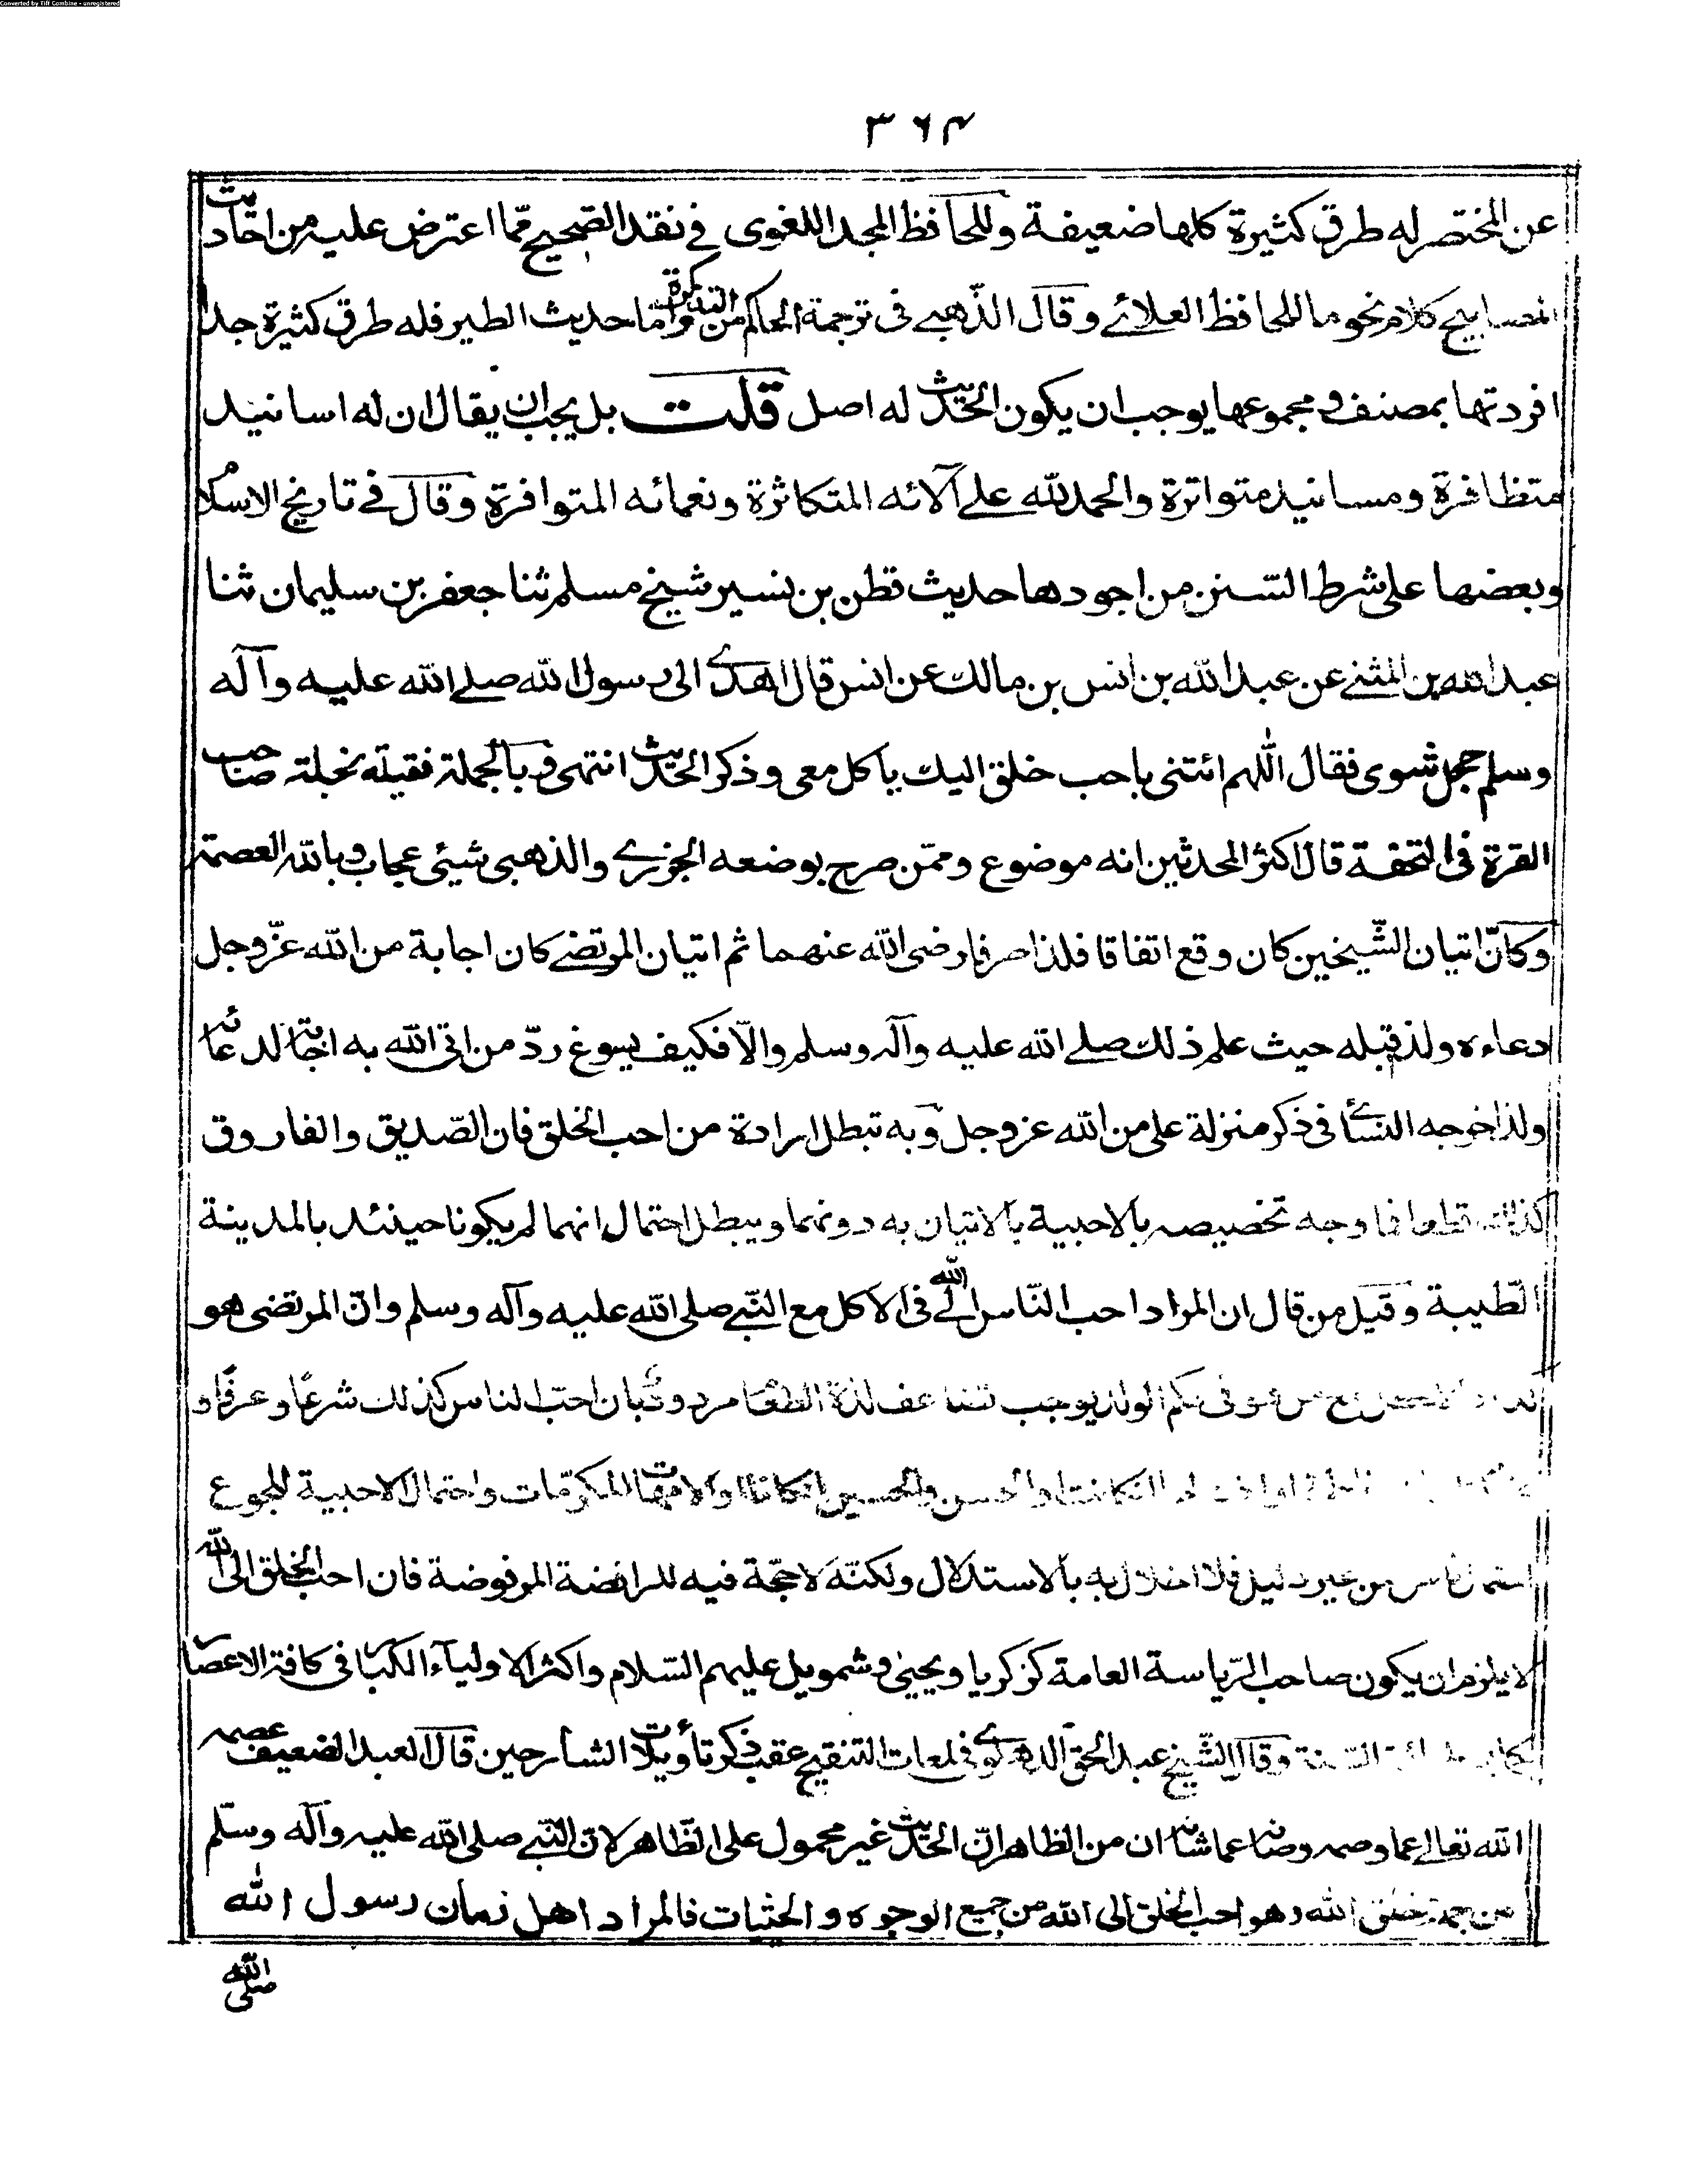 Converted by Tiff Combine - unregistered
۳۶۴
عن المختصر له طرق كثيرة كلها ضعيفة وللحافظ المجد اللغوى فى نقد الصحيح مّما اعترض عليه من احاديث
المصابيح كلام نحو ما للحافظ العلائے وقال الذّهبے فى ترجمة الحاكم من التذكرة وامّا حديث الطير فله طرق كثيرة جدا
افردتها بمصنف و مجموعها يوجب ان يكون الحديث له اصل قلت بل يجب ان يقال ان له اسانيد
متظافرة ومسانيد متواترة والحمد لله علے آلائه المتكاثرة ونعمائه المتوافرة وقال فے تاريخ الاسلام
وبعضها على شرط السّنن من اجودها حديث قطن بن نسير شيخ مسلم ثنا جعفر بن سليمان ثنا
عبد الله بن المثنے عن عبد الله بن انس بن مالك عن انس قال اهدے الى رسول الله صلے الله عليه وآله
وسلم حجل شوى فقال اللهم ائتنى باحب خلق اليك ياكل معى وذكر الحديث انتهى و بالجملة فقيلة نجلة صاحب
القرة فى التحفة قال اكثر المحدثين انه موضوع وممّن صرح بوضعه الجزرے والذهبى شيئى عجاب وبالله العصمة
وكانّ اتيان الشّيخين كان وقع اتفاقا فلذا صرفا رضى الله عنهما ثم اتيان المرتضے كان اجابة من الله عزّ وجل
دعاءه ولذ قبله حيث علم ذلك صلے الله عليه وآله وسلم والّا فكيف يسوغ ردّ من اتى الله به اجابة لدعائه
ولذا خرجه النسائے فى ذكر منزلة على من الله عز وجل وبه تبطل ارادة من احب الخلق فان الصّديق والفاروق
كذلك قطعا فما وجه تخصيصه بالاحبية بالاتيان به دونهما ويبطل احتمال انهما لم يكونا حينئذ بالمدينة
الطّيبة وقيل من قال ان المراد احب النّاس الى الله فى الاكل مع النّبے صلى الله عليه وآله وسلم وانّ المرتضى هو
مع من هو فى حكم الولد يوجب تضاعف لذة الطعام مردود بان احبّ الناس كذلك شرعًا وعرفًا و
لو كانت او الحسن والحسين ان كانا او لامهات المكرّمات واحتمال الاحبية للمجوع
من غير دليل فلا اخلال به بالاستدلال ولكنّه لا حجّة فيه للرافضة المرفوضة فان احب الخلق الى الله
لا يلزم ان يكون صاحب الرّياسة العامة كزكريا ويحيىٰ وشمويل عليهم السّلام واكثر الاولياء الكبار فى كافة الاعصار
السّنة وقال الشّيخ عبد الحق الدهلوے فى لمعات التنقيح عقب ذكر تأويلات الشارحين قال العبد الضعيف عصمه
الله تعالى عما وصمه وصانه عما شانه ان من الظاهر انّ الحديث غير محمول على الظّاهر لانّ النّبے صلى الله عليه وآله وسلّم
من جملة خلق الله وهو احب الخلق الى الله من جميع الوجوه والحثيات فالمراد اهل زمان رسول الله
صلى الله